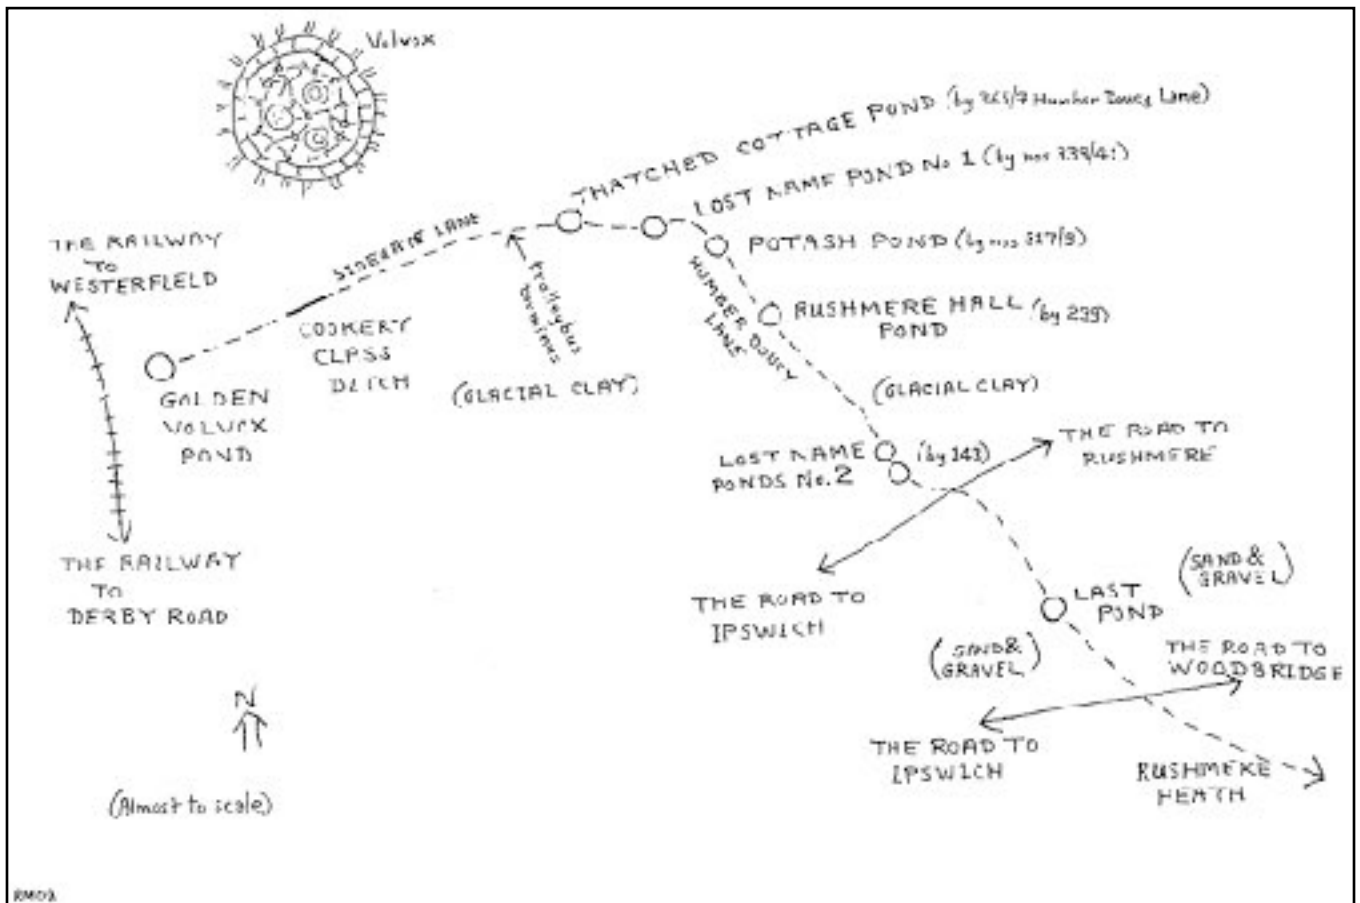 Volvox
THATCHED COTTAGE POND (by Humber Doucy Lane)
LOST NAME POND No 1 (by nos
POTASH POND (by nos
RUSHMERE HALL (by 239)
POND
HUMBER DOUCY
LANE
SIDEGATE LANE
trolleybus
terminus
THE RAILWAY
TO
WESTERFIELD
COOKERY
CLASS
DITCH
GOLDEN
VOLVOX
POND
(GLACIAL CLAY)
(GLACIAL CLAY)
LOST NAME (by 143)
PONDS No. 2
THE ROAD TO
RUSHMERE
THE RAILWAY
TO
DERBY ROAD
THE ROAD TO
IPSWICH
(SAND &
GRAVEL)
LAST
POND
(SAND &
GRAVEL)
THE ROAD TO
WOODBRIDGE
THE ROAD TO
IPSWICH
RUSHMERE
HEATH
N
(Almost to scale)